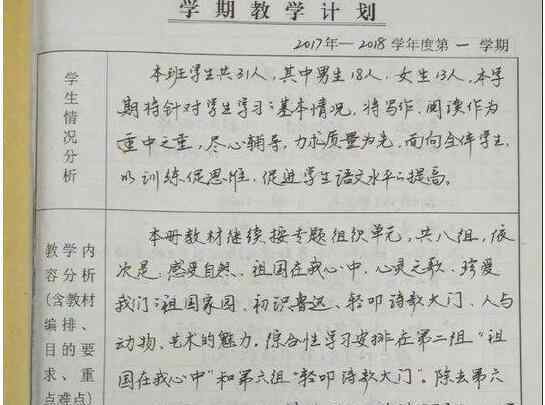 学期教学计划
2017年—2018学年度第一学期
学生情况分析
本班学生共31人，其中男生18人，女生13人，本学
期将针对学生学习的基本情况，将写作、阅读作为
重中之重，尽心辅导，力求质量为先，面向全体学生，
以训练促思维，促进学生语文水平的提高。
教学内
容分析
(含教材
编排、
目的要
求、重
点难点)
本册教材继续按专题组织单元，共八组，依
次是：感受自然、祖国在我心中、心灵之歌、珍爱
我们的祖国家园、初识鲁迅、轻叩诗歌大门、人与
动物、艺术的魅力。综合性学习安排在第二组“祖
国在我心中”和第六组“轻叩诗歌大门”。除去第六